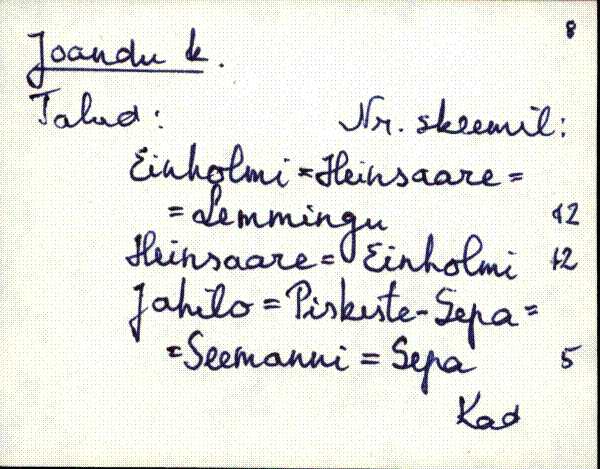 8
Joandu k.
Talud: Nr. skeemil:
Einholmi = Heinsaare =
= Lemmingu 12
Heinsaare = Einholmi 12
Jahilo = Piskeste-Sepa =
= Seemanni = Sepa 5
Kad